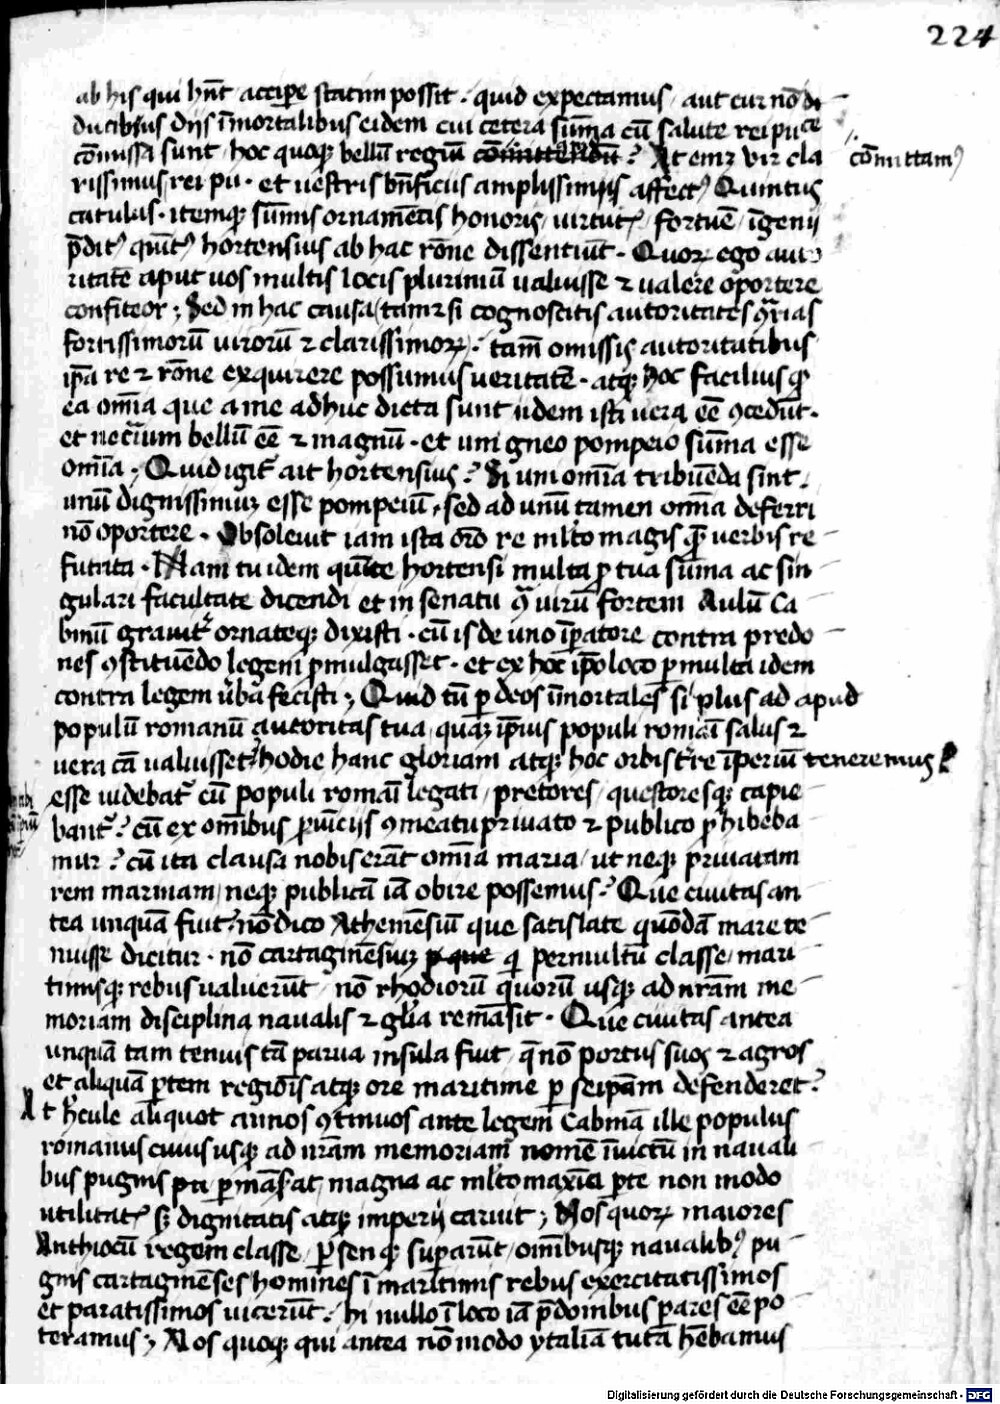 224
ab his qui hn̄t accip̄e statim possit · quid expectamus / aut cur nō di
ducibus diis īmortalibus eidem cui cetera sūma cū salute rei puce
cōmissa sunt / hoc quoqꝫ bellū regiū cōmittendū? At emꝫ vir cla
cōmittamꝰ
rissimus rei pu · et uestris bn̄ficiis amplissimis affectꝰ Quintus
catulus · itemqꝫ sūmis ornamētis honoris / virtutꝭ / fortūe / īgenii
p̄ditꝰ quītꝰ hortensius ab hac rōne dissentiūt · Quoꝝ ego auto
ritatē aput uos multis locis plurimū ualuisse ⁊ ualere oportere
confiteor ; Sed in hac causa / tamꝫ si cognoscitis autoritates ꝯr̄ias
fortissimorū uirorū ⁊ clarissimoꝝ : tam̄ omissis autoritatibus
ip̄a re ⁊ rōne exquirere possumus ueritatē · atqꝫ hoc facilius ꝙ
ea om̄ia que a me adhuc dicta sunt iidem isti uera eē ꝯcedūt ·
et nec̄rium bellū eē ⁊ magnū · et uni gneo pompeio sūma esse
om̄ia ; Quid igit̄ ait hortensius? Si uni om̄ia tribūeda sint ·
unū dignissimuꝫ esse pompeiū / sed ad unū tamen om̄ia deferri
nō oportere · Obsoleuit iam ista orō re ml̄to magis ꝙ̄ uerbis re
futata · Nam tu idem quīte hortensi multa ꝑ tua sūma ac sin
gulari facultate dicendi et in senatu ꝯ̄ uirū fortem Aulū Ca
binū grauit̄ ornateqꝫ dixisti · cū is de uno īꝑatore contra predo
nes ꝯstituēdo legem ꝓmulgasset · et ex hoc ip̄o loco ꝑmulta idem
contra legem ūba fecisti ; Quid tū ꝑ deos īmortales si plus ad apud
populū romanū autoritas tua quaꝫ ip̄ius populi romāi salus ⁊
uera cā ualuisset / hodie hanc gloriam atqꝫ hoc orbis t̄re īꝑium teneremus
esse uidebat̄ cū populi romāi legati / pretores / questoresqꝫ capie
bant̄? cū ex om̄ibus ꝓuīciis ꝯmeatu priuato ⁊ publico ꝓhibeba
mur? cū ita clausa nobis erāt om̄ia maria / ut neqꝫ priuatam
rem marinam / neqꝫ publicā iā obire possemus? Que ciuitas an
tea unquā fuit / nō dico Atheniēsiū que satis late quōdā mare te
nuisse dicitur · nō cartaginēsiuꝫ qi permultū classe / mari
timisqꝫ rebus ualuerūt / nō rhodiorū quorū usqꝫ ad nr̄am me
moriam disciplina naualis ⁊ gl̄ia remāsit · Que ciuitas antea
unquā tam tenuis tā parua insula fuit / q̄ nō portus suos ⁊ agros
et aliquā ꝑtem regiōis atqꝫ ore maritime ꝑ seip̄am defenderet?
At h̄cule aliquot annos ꝯtinuos ante legem Cabinā ille populus
romanus cuius usqꝫ ad nr̄am memoriam nomē īuictū in nauali
bus pugnis ꝑmāserat / magna ac ml̄to maxīa ꝑte non modo
utilitatꝭ sꝫ dignitatis atqꝫ imperii caruit ; Nos quoꝝ maiores
Anthiocū regem classe / ꝑsenqꝫ suꝑarūt / om̄ibusqꝫ naualibꝰ pu
gnis cartaginēses homines ī maritimis rebus exercitatissimos
et paratissimos uicerūt : hi nullo ī loco iā p̄donibus pares eē po
teramus ; Nos quoqꝫ qui antea nō modo ytaliā tutā hēbamus
Digitalisierung gefördert durch die Deutsche Forschungsgemeinschaft · DFG